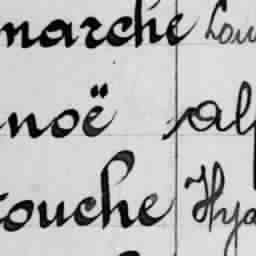 marche Lou
noë alp
touche Hya